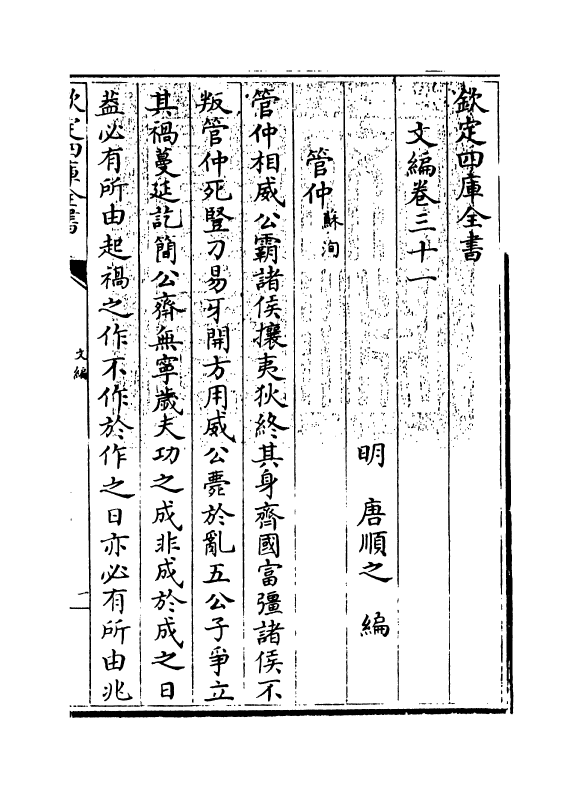 欽定四庫全書
文編卷三十一
明 唐順之 編
管仲 蘇洵
管仲相威公霸諸侯攘夷狄終其身齊國富彊諸侯不
叛管仲死豎刀易牙開方用威公薨於亂五公子爭立
其禍蔓延訖簡公齊無寧歲夫功之成非成於成之日
葢必有所由起禍之作不作於作之日亦必有所由兆
欽定四庫全書
文編
一